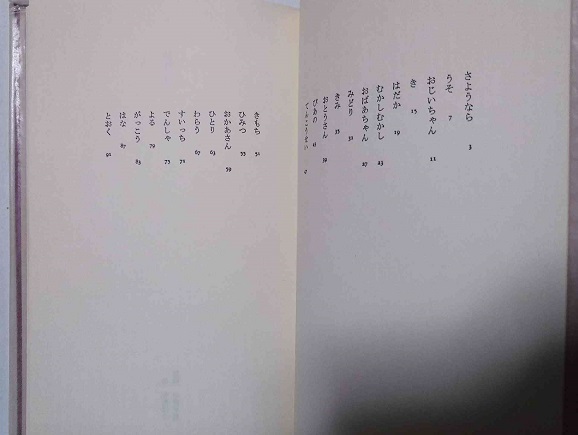 さようなら 3
うそ 7
おじいちゃん 11
き 15
はだか 19
むかしむかし 23
おばあちゃん 27
みどり 31
きみ 35
おとうさん 39
ぴあの 43
てんこうせい 47
きもち 51
ひみつ 55
おかあさん 59
ひとり 63
わらう 67
すいっち 71
でんしゃ 75
よる 79
がっこう 83
はな 87
とおく 91